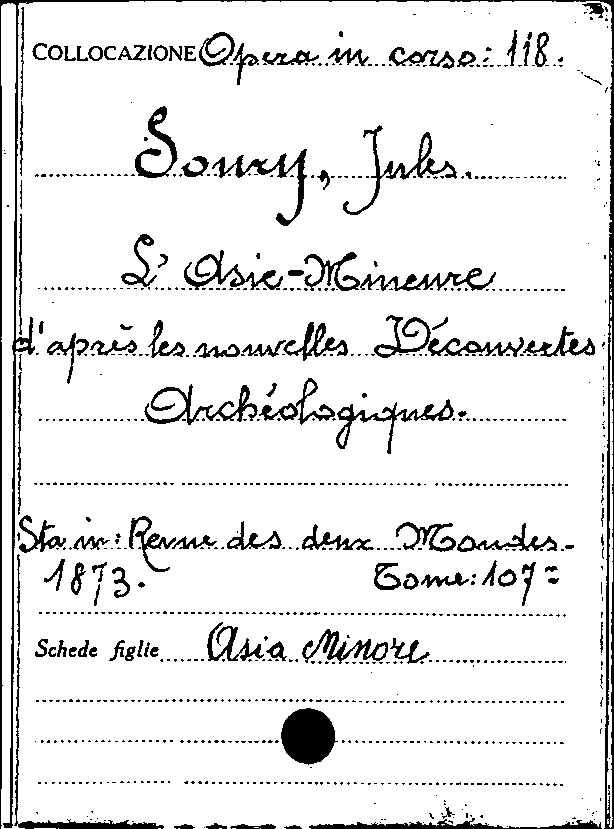 COLLOCAZIONE Opera in corso: 118.
Soury, Jules.
L' Asie-Mineure
d'après les nouvelles Découvertes
Archéologiques.
Sta in: Revue des deux Mondes.
1873. Tome: 107=
Schede figlie Asia Minore